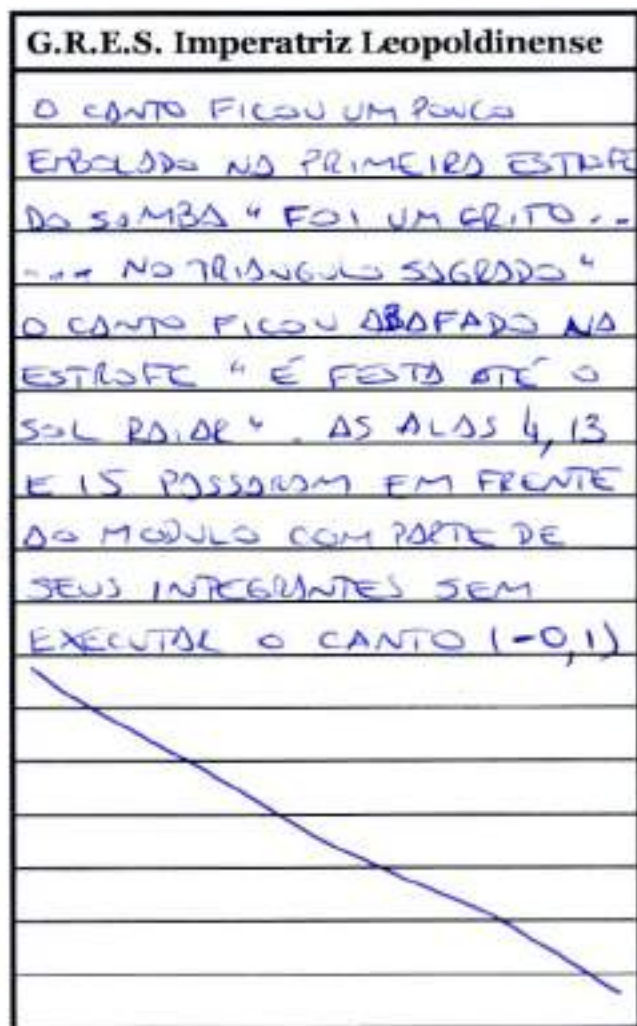 G.R.E.S. Imperatriz Leopoldinense
O CANTO FICOU UM POUCO
EMBOLADO NA PRIMEIRA ESTROFE
DO SAMBA " FOI UM GRITO ...
.... NO TRIANGULO SAGRADO "
O CANTO FICOU ABAFADO NA
ESTROFE " É FESTA ATÉ O
SOL RAIAR " . AS ALAS 4, 13
E 15 PASSARAM EM FRENTE
AO MODULO COM PARTE DE
SEUS INTEGRANTES SEM
EXECUTAR O CANTO (-0,1)